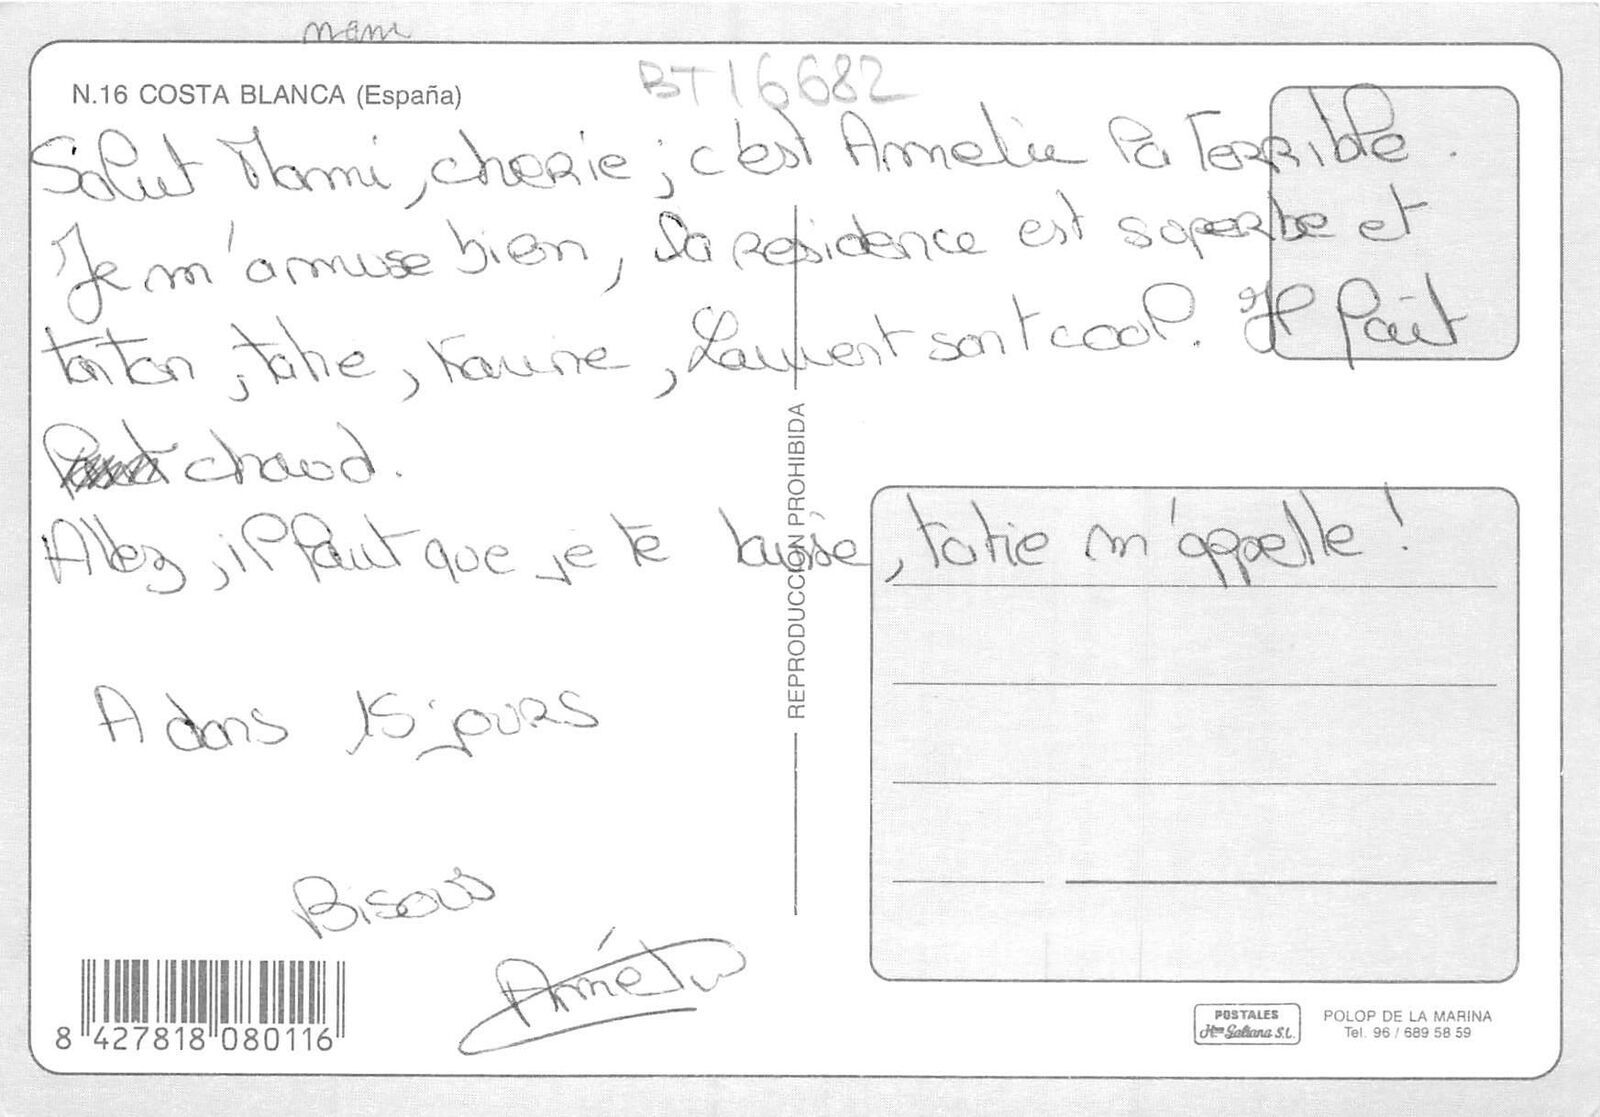 mami
BT16682
N.16 COSTA BLANCA (España)
Salut Mami, cherie, c'est Amelie la Terrible.
Je m'amuse bien, la residence est superbe et
tonton, tatie, Karine, Laurent sont cool. Il fait
chaud.
Allez, il faut que je te laisse, tatie m'appelle !
A dans 15 jours
Bisous
Amélie
REPRODUCCIÓN PROHIBIDA
8 427818 080116
POSTALES
Hnos Galiana S.L.
POLOP DE LA MARINA
Tel. 96 / 689 58 59